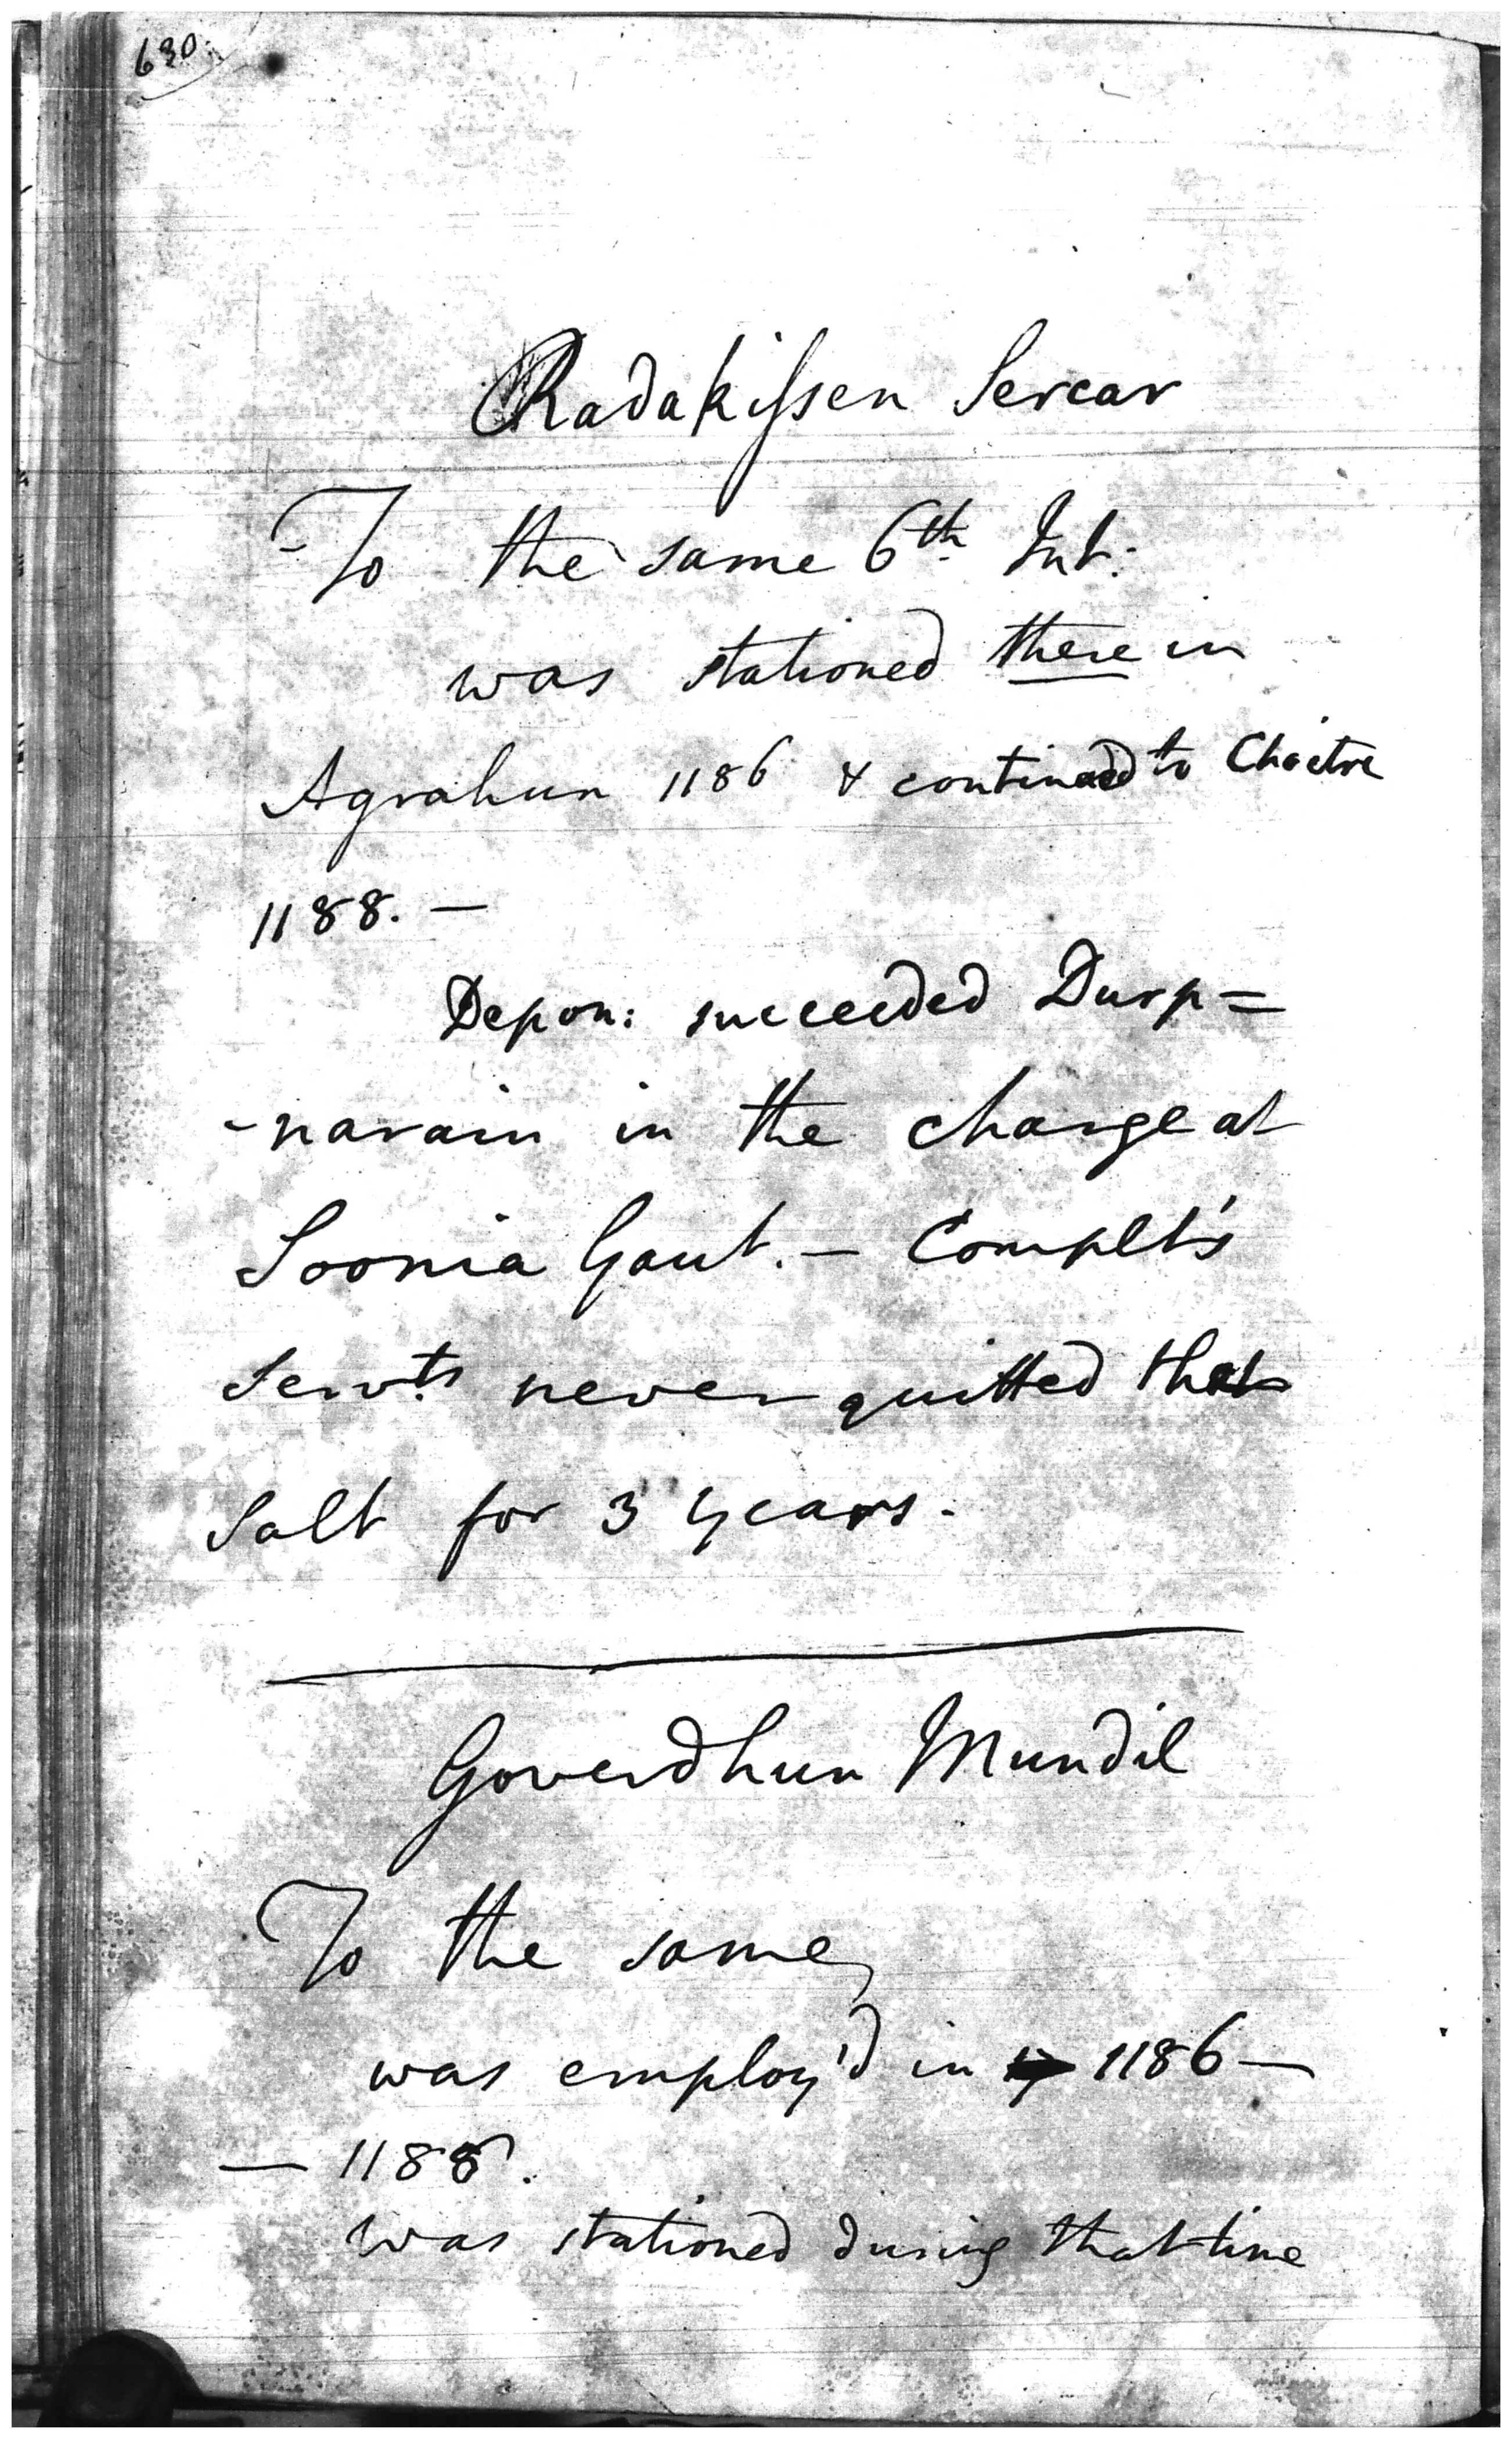 630
Radakissen Sercar
To the same 6th Int:
was stationed there in
Agrahun 1186 & continued to Choitre
1188. —
Depon: succeeded Durp=
-narain in the charge at
Soonia Gaut. — Complts
Servts never quitted that
Salt for 3 years.
Goverdhun Mundil
To the same
was employ'd in 1186 —
— 1188.
was stationed during that time